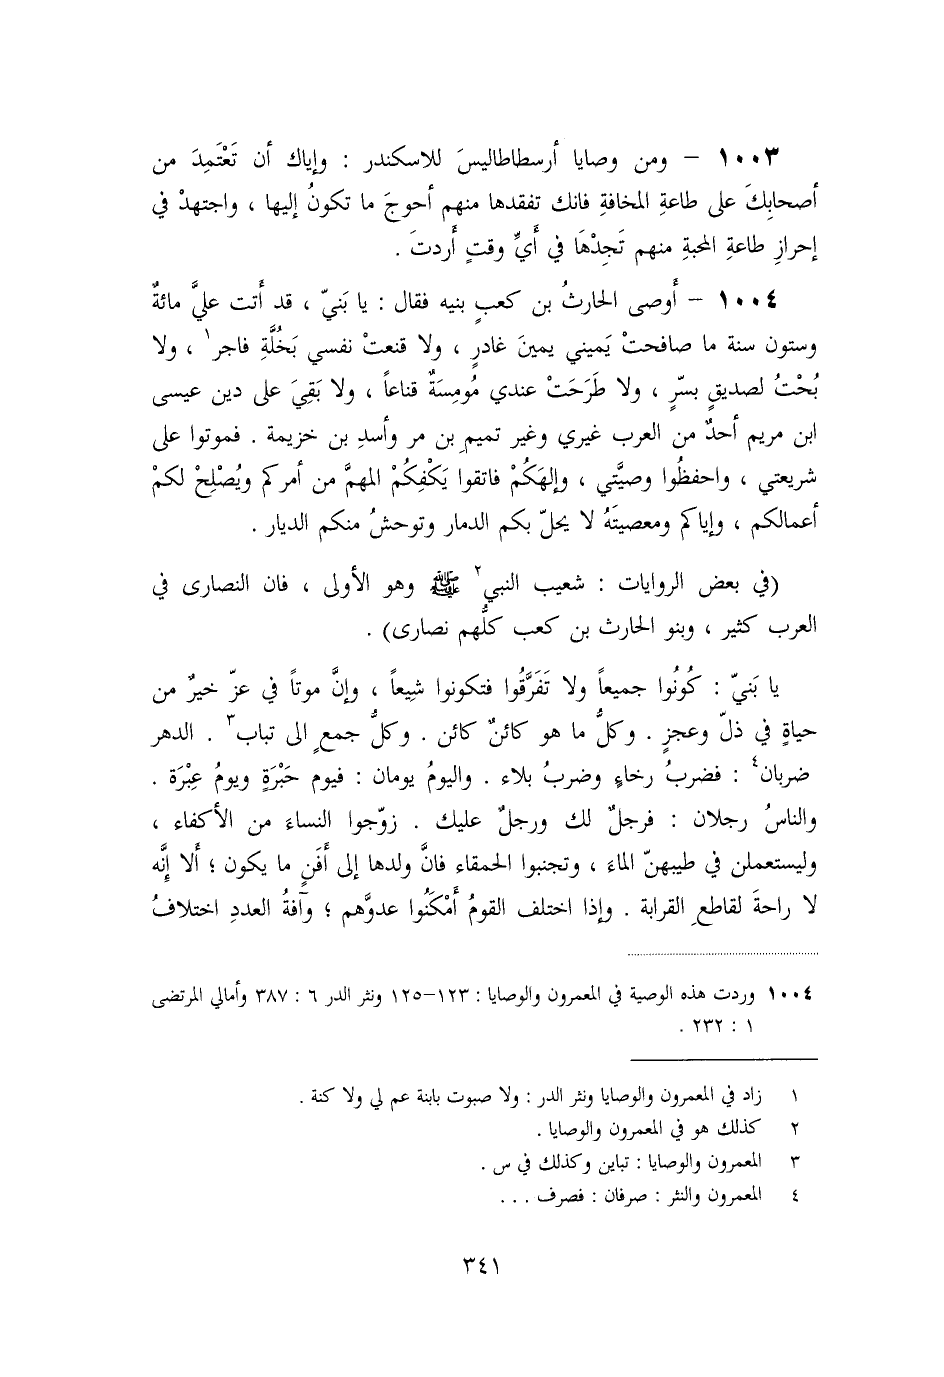 ١٠٠٣ – ومن وصايا أرسطاطاليسَ للاسكندر : وإياك أن تَعْتَمِدَ من
أصحابِكَ على طاعةِ المخافةِ فانك تفقدها منهم أحوجَ ما تكونُ إليها ، واجتهدْ في
إحرازِ طاعةِ المحبةِ منهم تَجِدْهَا في أَيِّ وقتٍ أَردتَ .
١٠٠٤ – أَوصى الحارثُ بن كعبٍ بنيه فقال : يا بَنيّ ، قد أَتت عليَّ مائةٌ
وستون سنة ما صافحتْ يَميني يمينَ غادرٍ ، ولا قنعتْ نفسي بَخُلَّةِ فاجر١ ، ولا
بُحْتُ لصديقٍ بسّرٍ ، ولا طَرَحَتْ عندي مُومِسَةٌ قناعاً ، ولا بَقِيَ على دين عيسى
ابن مريم أحدٌ من العرب غيري وغير تميمِ بن مر وأسدِ بن خزيمة . فموتوا على
شريعتي ، واحفظُوا وصيَّتي ، وإلهَكُمْ فاتقوا يَكْفِكُمْ المهمَّ من أمركم ويُصْلِحْ لكمْ
أعمالكم ، وإياكم ومعصيتَهُ لا يحلّ بكم الدمار وتوحشُ منكم الديار .
(في بعض الروايات : شعيب النبي٢ ﷺ وهو الأولى ، فان النصارى في
العرب كثير ، وبنو الحارث بن كعب كلُّهم نصارى) .
يا بَنيّ : كُونُوا جميعاً ولا تَفَرَّقُوا فتكونوا شِيعاً ، وإنَّ موتاً في عزّ خيرٌ من
حياةٍ في ذلّ وعجزٍ . وكلُّ ما هو كائنٌ كائن . وكلُّ جمعٍ الى تباب٣ . الدهر
ضربان٤ : فضربُ رخاءٍ وضربُ بلاء . واليومُ يومان : فيوم حَبْرَةٍ ويومُ عِبْرَة .
والناسُ رجلان : فرجلٌ لك ورجلٌ عليك . زوّجوا النساءَ من الأكفاء ،
وليستعملن في طيبهنّ الماءَ ، وتجنبوا الحمقاء فانَّ ولدها إلى أَفَنٍ ما يكون ؛ أَلا إِنَّه
لا راحةَ لقاطعِ القرابة . وإذا اختلف القومُ أَمْكَنُوا عدوَّهم ؛ وآفةُ العددِ اختلافُ
١٠٠٤ وردت هذه الوصية في المعمرون والوصايا : ١٢٣–١٢٥ ونثر الدر ٦ : ٣٨٧ وأمالي المرتضى
١ : ٢٣٢ .
١ زاد في المعمرون والوصايا ونثر الدر : ولا صبوت بابنة عم لي ولا كنة .
٢ كذلك هو في المعمرون والوصايا .
٣ المعمرون والوصايا : تباين وكذلك في س .
٤ المعمرون والنثر : صرفان : فصرف . . .
٣٤١